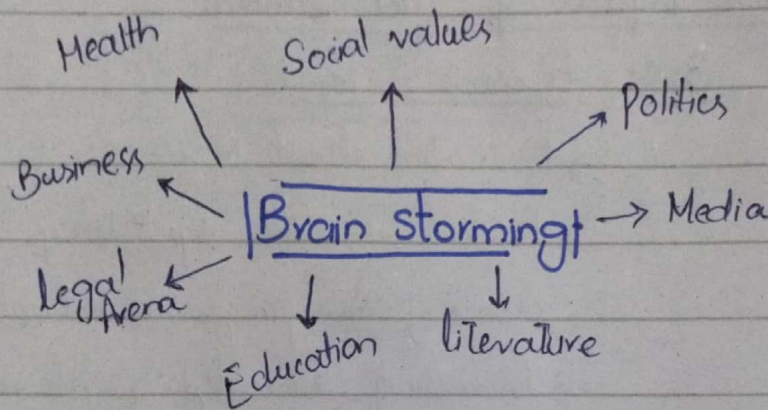 Health
Social values
Politics
Business
Brain storming
Media
Legal
Arena
Education
literature